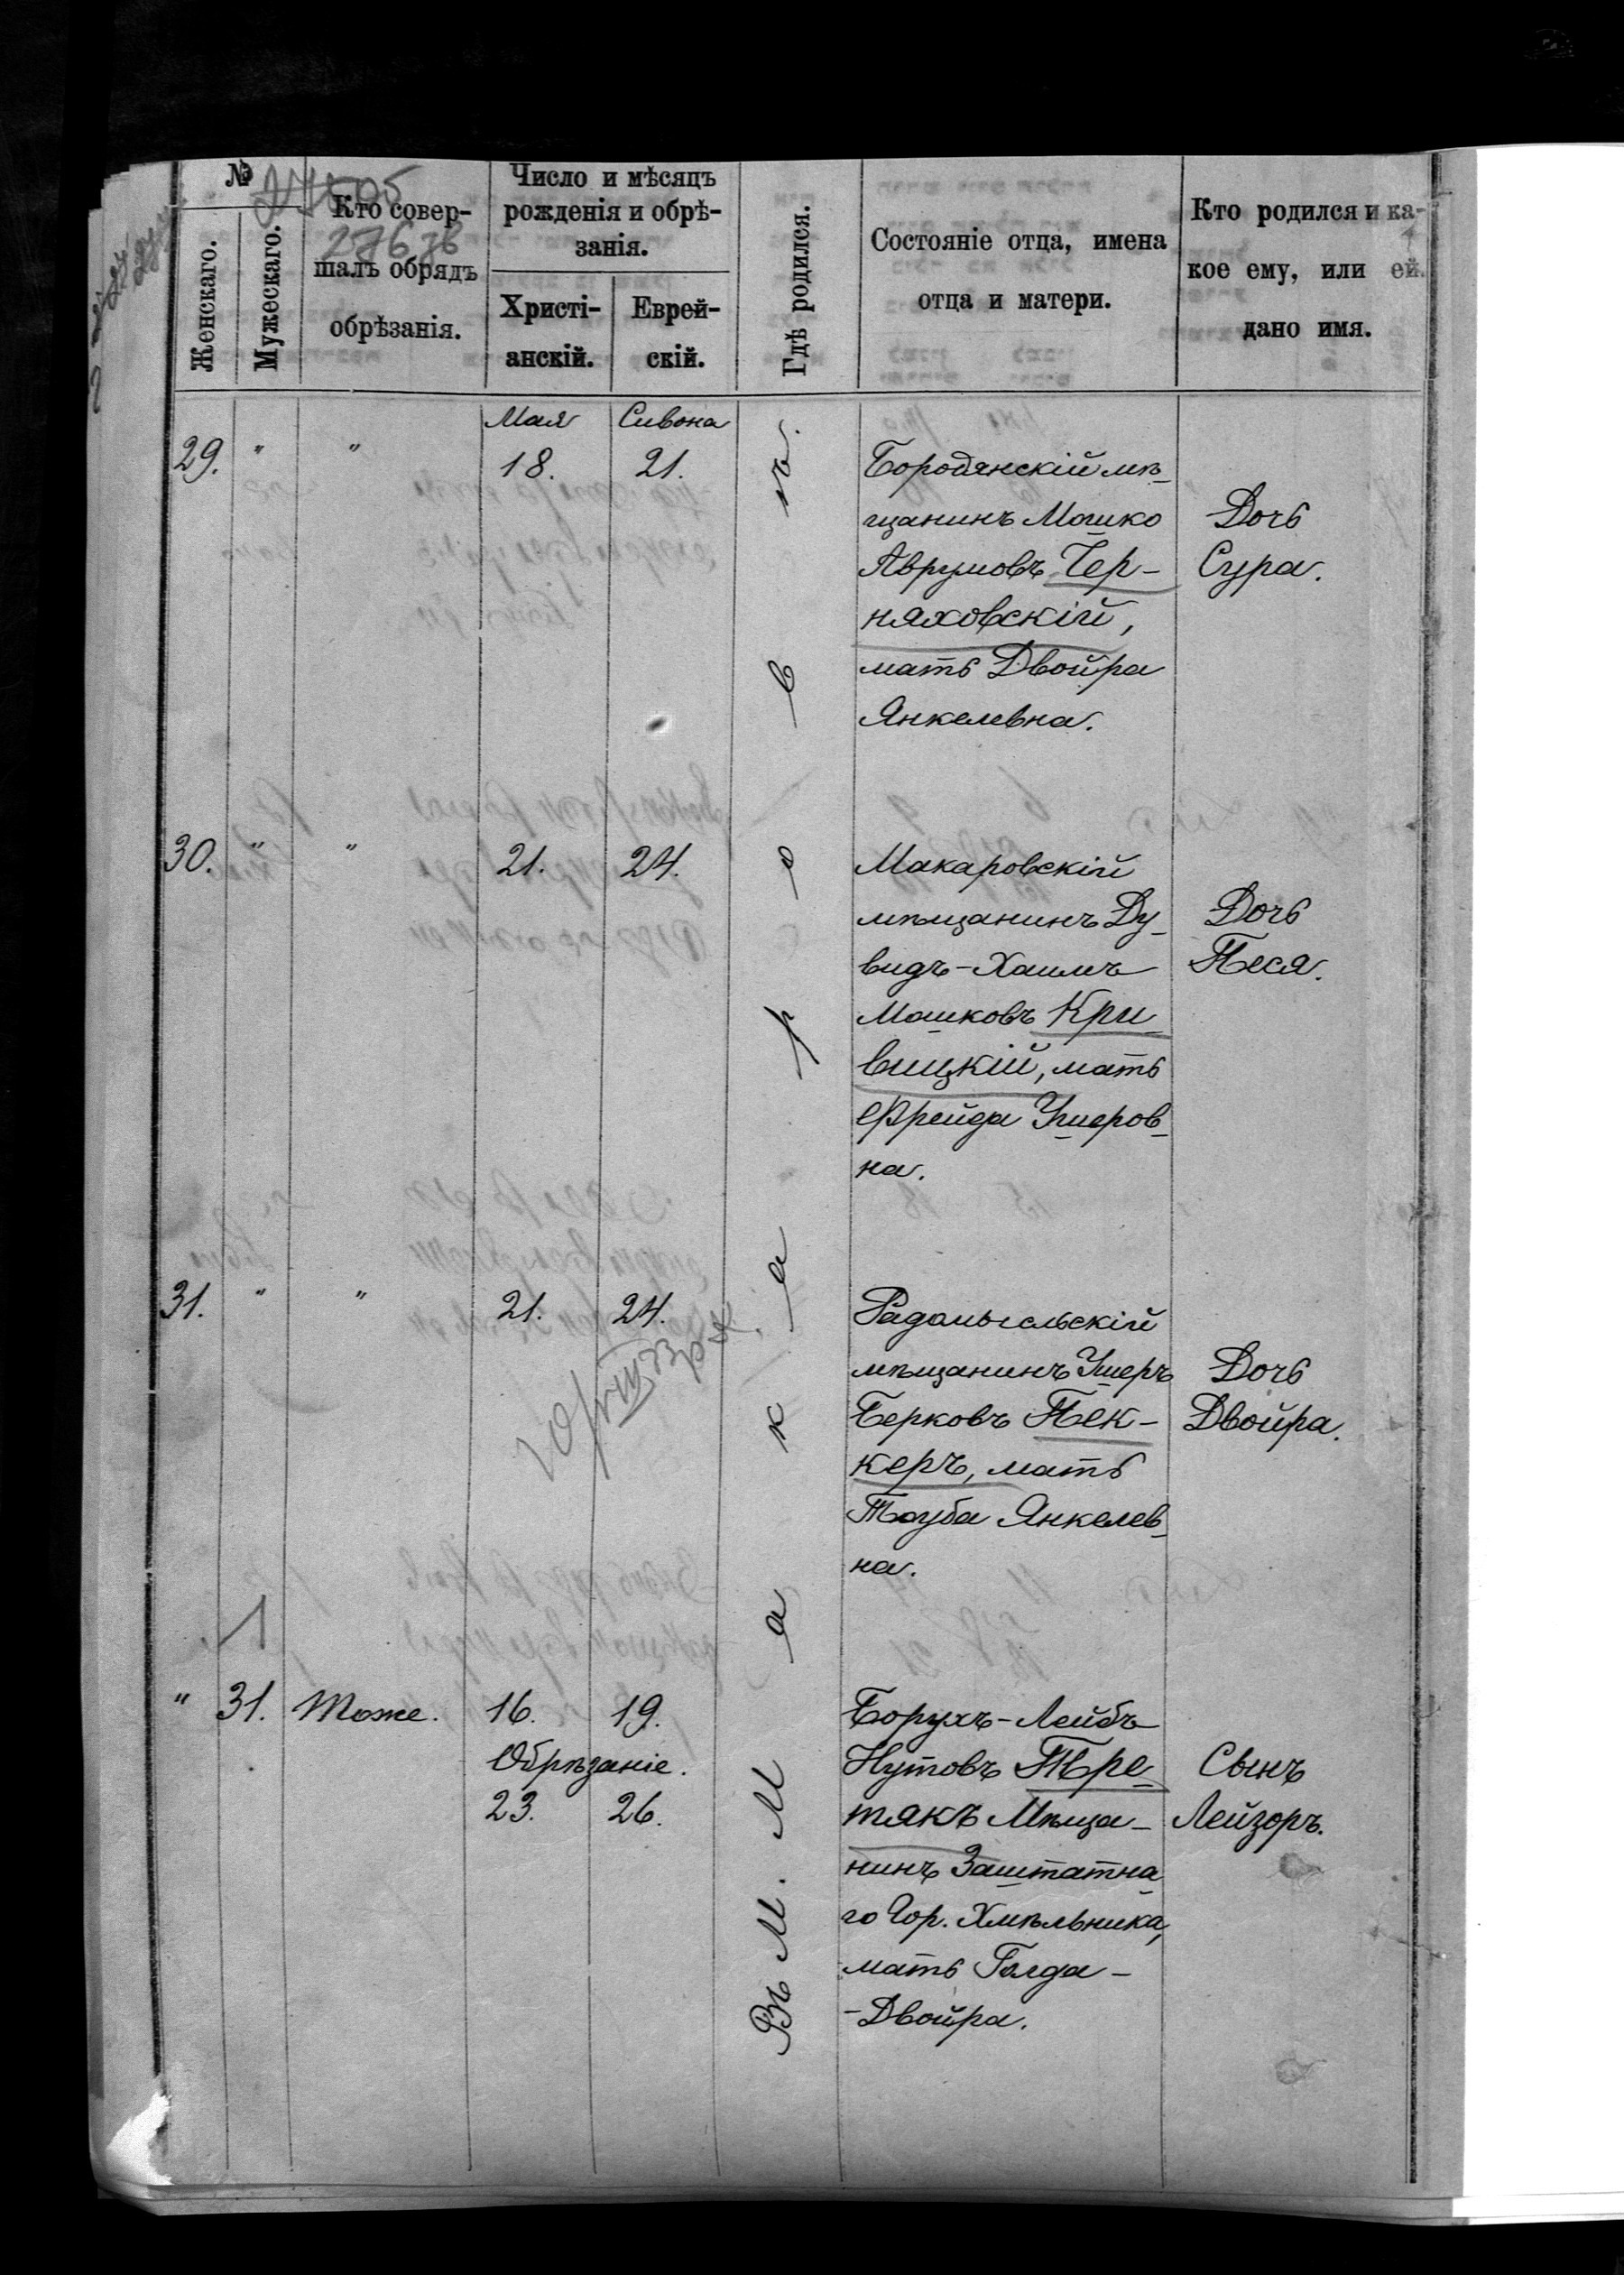 №
27505
27636
Женскаго.
Мужескаго.
Кто совер-
шалъ обрядъ
обрѣзанія.
Число и мѣсяцъ
рожденія и обрѣ-
занія.
Христі-
анскій.
Еврей-
скій.
Гдѣ родился.
Состояніе отца, имена
отца и матери.
Кто родился и ка-
кое ему, или ей
дано имя.
Въ м. Макаровъ.
Мая Сивона
29. " " 18. 21.
Бородянскій мѣ-
щанинъ Мошко
Аврумовъ Чер-
няховскій,
мать Двойра
Янкелевна.
Дочь
Сура.
30. " " 21. 24.
Макаровскій
мѣщанинъ Ду-
видъ-Хаимъ
Мошковъ Кри-
вицкій, мать
Фрейда Ушеров-
на.
Дочь
Песя.
31. " " 21. 24.
Радомысльскій
мѣщанинъ Ушеръ
Берковъ Пек-
керъ, мать
Тауба Янкелев-
на.
Дочь
Двойра.
" 31. Тоже. 16. 19.
Обрѣзаніе.
23. 26.
Борухъ-Лейбъ
Нутовъ Тре-
тякъ Мѣща-
нинъ Заштатна-
го Гор. Хмѣльника,
мать Голда-
-Двойра.
Сынъ
Лейзоръ.